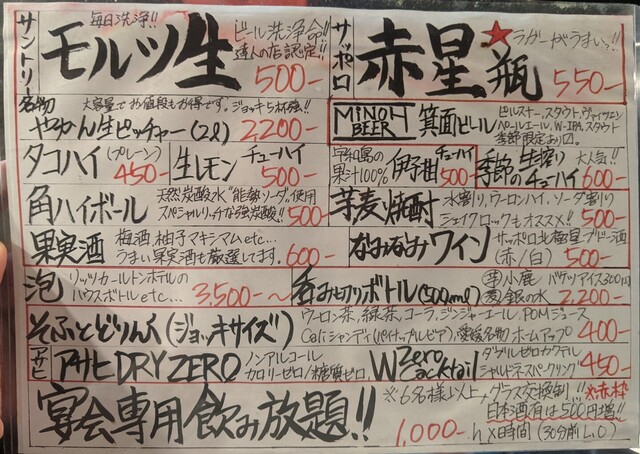 サントリー
毎日洗浄!!
モルツ生
ビール洗浄命!!
達人の店認定!!
500-
サッポロ
赤星★瓶
ラガーがうまいっ!!
550-
名物
大容量でお値段もお得です。ジョッキ5杯強!!
やかん生ピッチャー(2ℓ) 2,200-
MINOH BEER
箕面ビール
ピルスナー、スタウト、ヴァイツェン
ペールエール、W-IPA、スタウト
季節限定あり〼。
タコハイ (プレーン) 450-
生レモンチューハイ 500-
宇和島の果汁100% 伊予柑チューハイ 500-
季節の生搾りチューハイ 大人気!! 600-
角ハイボール
天然炭酸水"能勢ソーダ"使用
スペシャルリッチな強炭酸!! 500-
芋麦焼酎
水割り、ウーロンハイ、ソーダ割り
シェイクロックもオススメ!! 500-
果実酒
梅酒、柚子マキシマムetc...
うまい果実酒も厳選してます。 600-
なみなみワイン
サッポロ
(赤/白) 500-
泡
リッツカールトンホテルの
ハウスボトルetc... 3,500-〜
呑み切りボトル(500ml)
芋 小鹿 バケツアイス300-
麦 銀の水 2,200-
そふとどりんく(ジョッキサイズ)
ウーロン茶、緑茶、コーラ、ジンジャーエール、POMジュース
Caliシャンディ(パイナップルビア)、愛媛名物ホームアップ 400-
アサヒ
アサヒDRY ZERO
ノンアルコール
カロリーゼロ/糖質ゼロ
W Zero Cocktail
ダブルゼロカクテル
シャルドネスパークリング 450-
宴会専用飲み放題!!
※6名様以上、グラス交換制!! ※赤枠
日本酒有は500円増!!
1,000-h×時間(30分前L.O)